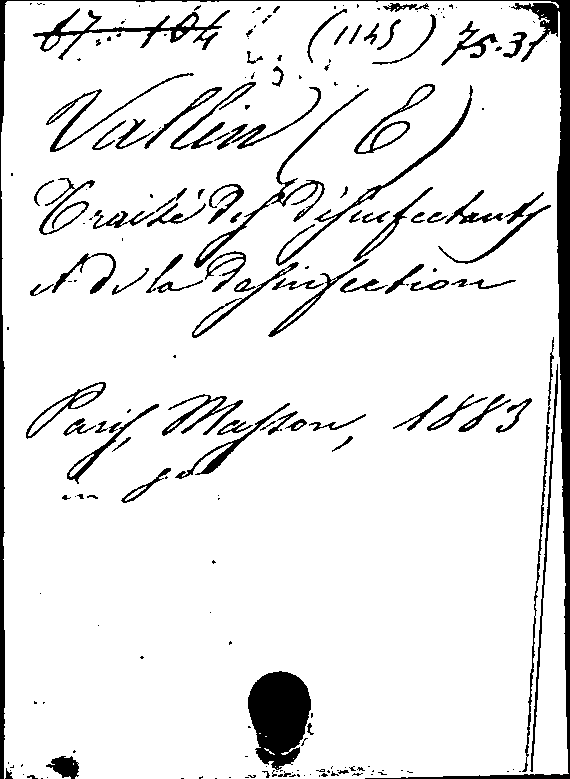 67-104 (1145) 75-31
Vallin (E)
Traité des désinfectants
et de la desinfection
Paris, Masson, 1883
in 8º